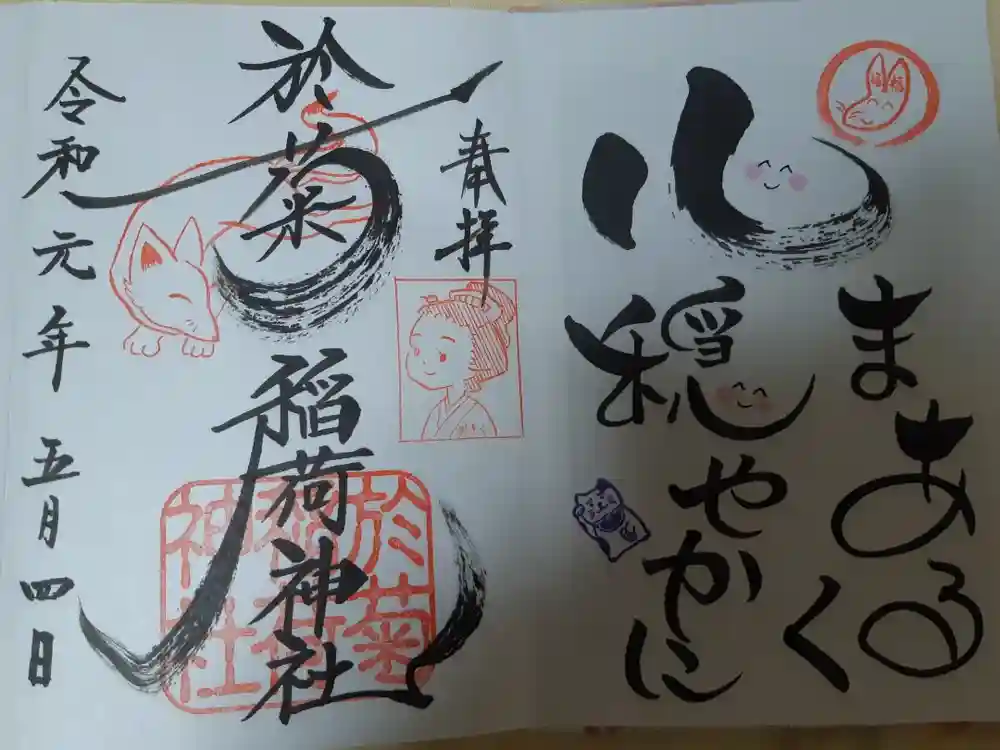 心
まあるく
穏やかに
奉拝
於菊稲荷神社
於菊
稲荷
神社
令和元年五月四日